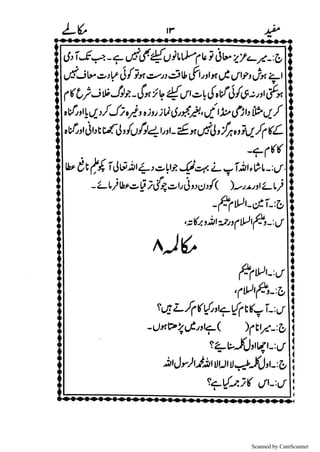 مفید ۱۳ مکالمے
ج:۔ میرے عزیز معافی تو عام مسلمانوں کیلئے بھی نہیں ہے۔ جب تک آدمی
اپنے ہوش وحواس میں ہو اور اسکی طاقت درست ہو تو کوئی عبادت معاف نہیں
ہوسکتی اور نہ ہی کوئی گناہ کی بات اس کیلئے جائز ہوگی۔ جو لوگ خلاف شرع کام
کریں مثلاً داڑھی منڈائیں، بغیر مجبوری نماز روزہ وغیرہ ترک کردیں یا اور گناہ
کے کام کریں تو وہ ہرگز ولی نہیں ہوسکتے۔ اور ایسے لوگوں کو ولی سمجھنا نادانی اور گناہ
کا کام ہے۔
س:۔ ماشاء اللہ آپ نے بہت ٹھیک جوابات دیے اللہ تعالیٰ آپکو علم نافع عطا
فرمائے اور مدرسہ ( ) کو دن دونی رات چوگنی ترقیات عطا فرمائے۔
ج:۔ آمین۔ السلام علیکم۔
س:۔ وعلیکم السلام ورحمۃ اللہ وبرکاتہ،
مکالمہ ۸
س:۔ السلام علیکم
ج:۔ وعلیکم السلام،
س:۔ آپ کا نام کیا ہے اور کیا کام کرتے ہیں؟
ج:۔ میرا نام ( ) ہے اور میں پڑھتا ہوں۔
س:۔ اچھا اول کلمہ سنایئے؟
ج:۔ اول کلمہ طیب لا الہ الا اللہ محمد الرسول اللہ
س:۔ اس کا ترجمہ کیا ہے؟
Scanned by CamScanner